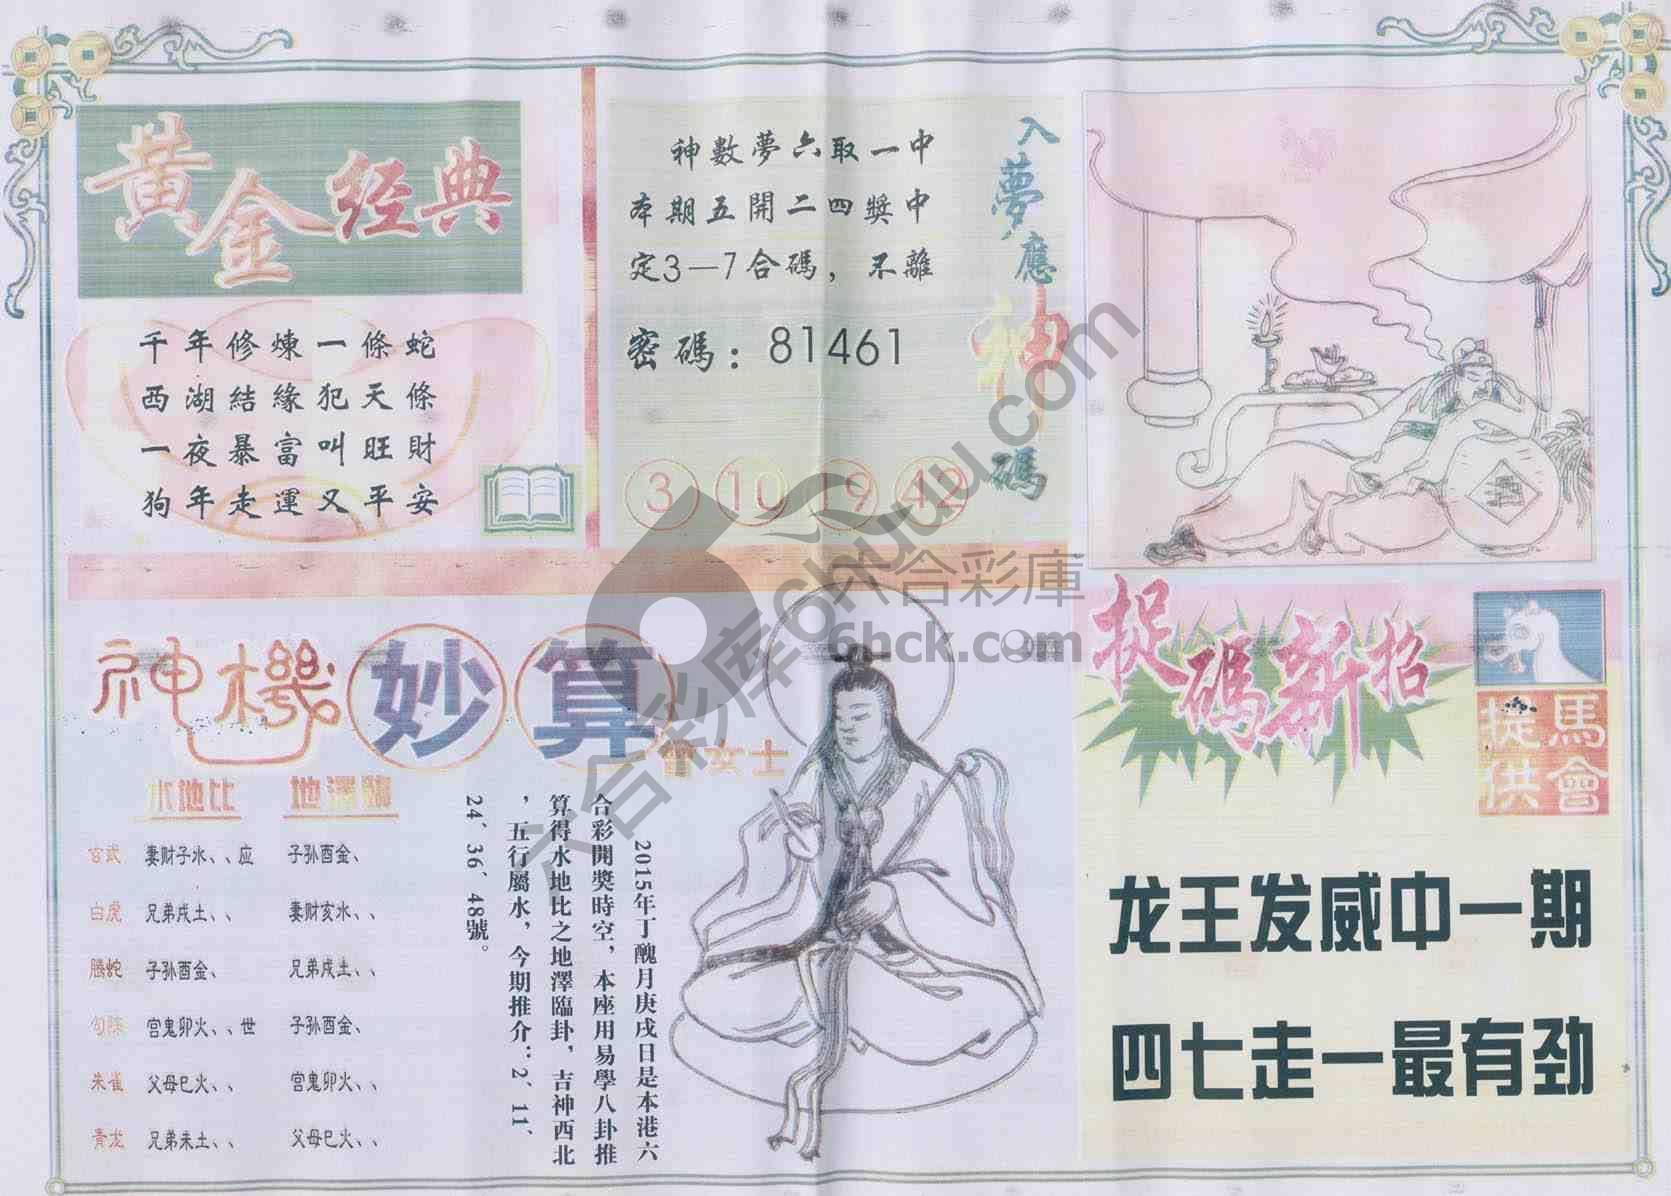 黃金经典
千年修煉一條蛇
西湖結緣犯天條
一夜暴富叫旺財
狗年走運又平安
神數夢六取一中
本期五開二四獎中
定3—7合碼，不離
密碼：81461
入夢應神碼
3 10 19 42
神機妙算
曾女士
水地比 地澤臨
玄武 妻财子水、、应 子孙酉金、
白虎 兄弟戌土、、 妻财亥水、、
腾蛇 子孙酉金、 兄弟戌土、、
勾陈 宫鬼卯火、、世 子孙酉金、
朱雀 父母巳火、、 宫鬼卯火、、
青龙 兄弟未土、、 父母巳火、、
2015年丁醜月庚戌日是本港六
合彩開獎時空，本座用易學八卦推
算得水地比之地澤臨卦，吉神西北
，五行屬水，今期推介：2、11、
24、36、48號。
捉碼新招
馬會
提供
龙王发威中一期
四七走一最有劲
六合彩库 6hcku.com
六合彩庫
6hck.com